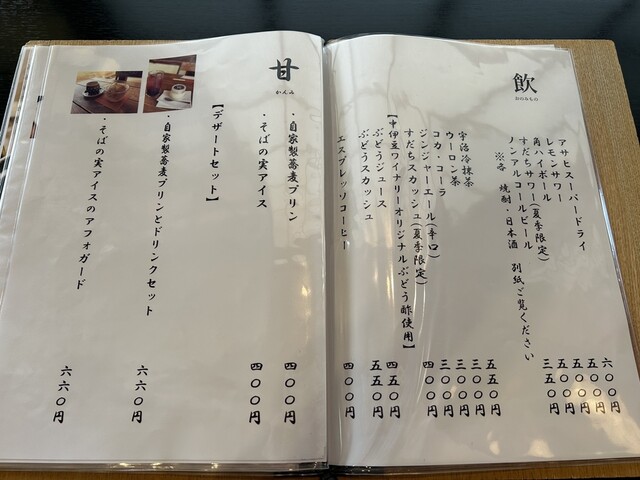 飲
おのみもの
アサヒスーパードライ 六〇〇円
レモンサワー 五〇〇円
角ハイボール 五〇〇円
すだちサワー(夏季限定) 五〇〇円
ノンアルコールビール 三五〇円
※各 焼酎・日本酒 別紙ご覧ください
宇治冷抹茶 五五〇円
ウーロン茶 三〇〇円
コカ・コーラ 三〇〇円
ジンジャーエール(辛口) 三〇〇円
すだちスカッシュ(夏季限定) 四〇〇円
【中伊豆ワイナリーオリジナルぶどう酢使用】
ぶどうジュース 四五〇円
ぶどうスカッシュ 五五〇円
エスプレッソコーヒー 四〇〇円
甘
かんみ
・自家製蕎麦プリン 四〇〇円
・そばの実アイス 四〇〇円
【デザートセット】
・自家製蕎麦プリンとドリンクセット 六六〇円
・そばの実アイスのアフォガード 六六〇円